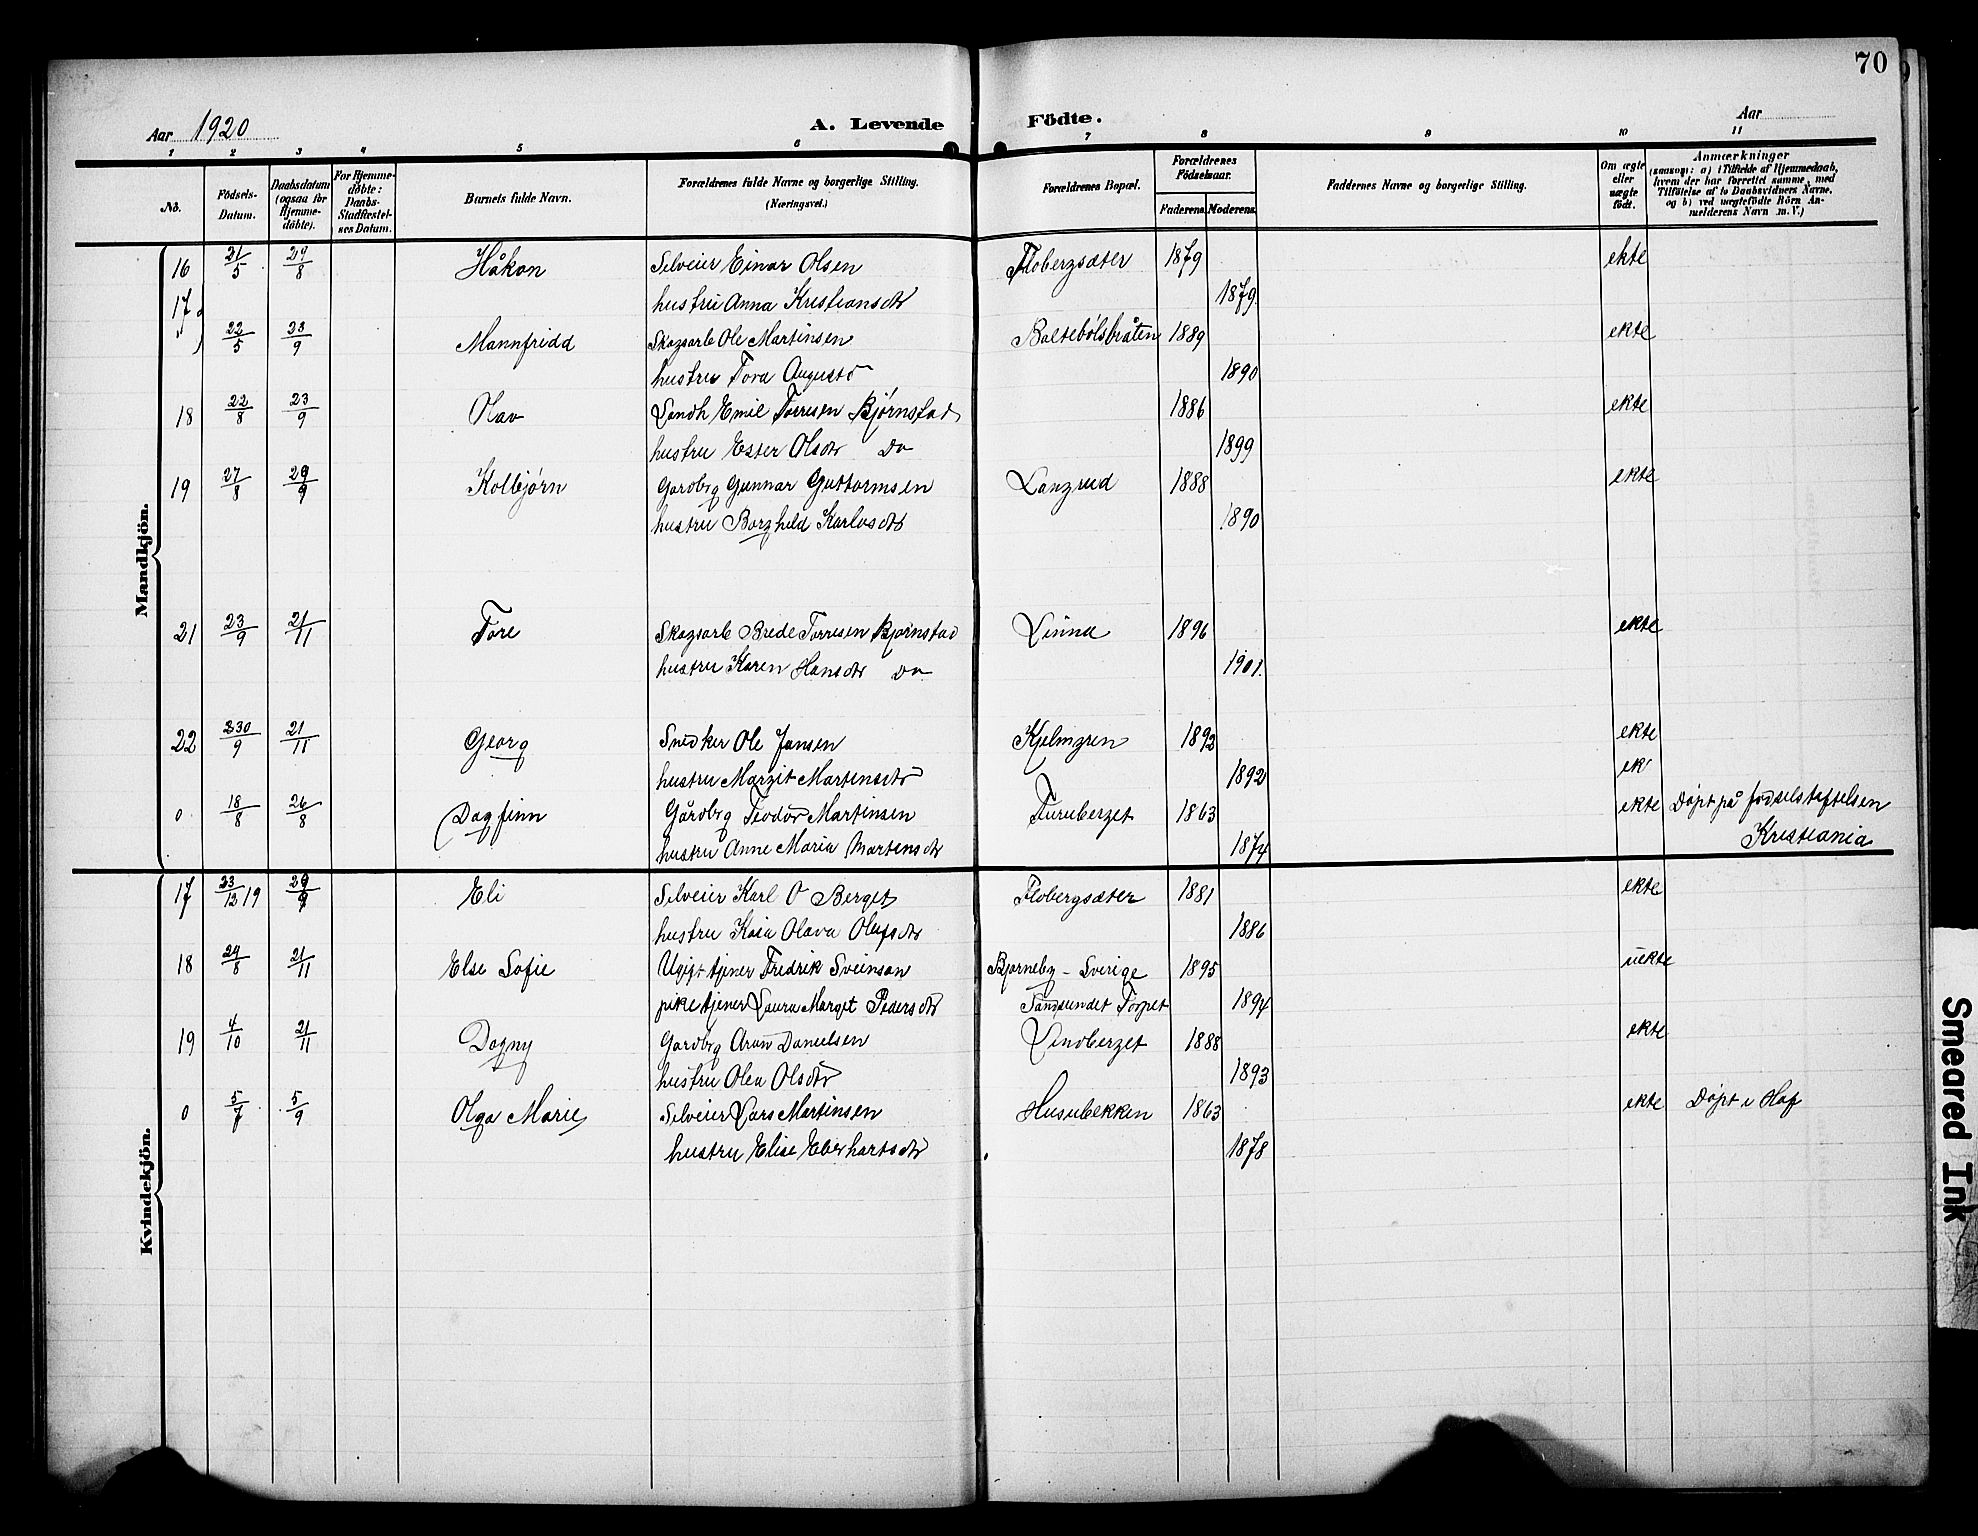 70
Aar 1920 A. Levende Födte. Aar
1 2 3 4 5 6 7 8 9 10 11
No.
Födsels-Datum.
Daabsdatum (ogsaa for Hjemme-döbte).
For Hjemme-döbte: Daabs-Stadfæstel-ses Datum.
Barnets fulde Navn.
Forældrenes fulde Navne og borgerlige Stilling. (Næringsvei.)
Forældrenes Bopæl.
Forældrenes Födselsaar.
Faderens. Moderens.
Faddernes Navne og borgerlige Stilling.
Om ægte eller uægte födt.
Anmærkninger
(saasom: a) i Tilfælde af Hjemmedaab,
hvem der har forrettet samme, med
Tilföielse af to Daabsvidners Navne,
og b) ved uægtefödte Börn An-
melderens Navn m. V.)
Mandkjön.
16 21/5 29/8 Håkon Selveier Einar Olsen Flobergsæter 1879 ekte
17 hustru Anna Kristiansdtr 1879
22/5 23/9 Mannfridd Skogsarb Ole Martinsen Baltebölsbråten 1889 ekte
hustru Tora August 1890
18 22/8 23/9 Olav Landh Emil Torresen Bjørnstad 1886 ekte
hustru Ester Olsdtr Do 1899
19 27/8 29/9 Kolbjørn Gardbrg Gunnar Guttormsen Langrud 1888 ekte
hustru Borghild Karlusdtr 1890
21 23/9 21/11 Tore Skogsarb Brede Torresen Bjørnstad Linna 1896 ekte
hustru Karen Hansdtr Do 1901.
22 30/9 21/11 Georg Snedker Ole Jansen Kjelmyren 1892 ekte
hustru Margit Martensdtr 1892 ek
0 18/8 26/8 Dagfinn Gårdbrg Teodor Martinsen Furuberget 1863 ekte Døpt på fødselstiftelsen
hustru Anne Maria Martensdtr 1874 Kristiania
Kvindekjön.
17 23/12 19 29/9 Eli Selveier Karl O Berget Flobergsæter 1881 ekte
hustru Kaia Olava Olufsdtr 1886
18 24/8 21/11 Else Sofie Ugift tjener Fredrik Sveinson Bjørneby - Sverige 1895 uekte
pike tjener Laura Marget Pedersdtr Sandsundet Torpet 1894
19 4/10 21/11 Dagny Gardbrg Aron Danielsen Lindberget 1888 ekte
hustru Olea Olsdtr 1893
0 5/7 5/9 Olga Marie Selveier Lars Martinsen Husubekken 1863 ekte Døpt i Hof
hustru Elise Eberhartsdtr 1878
Smeared Ink